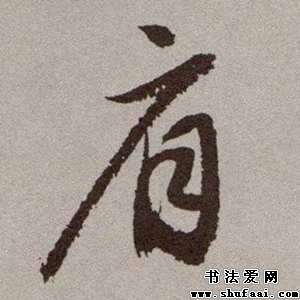 肩
书法爱网
www.shufaai.com